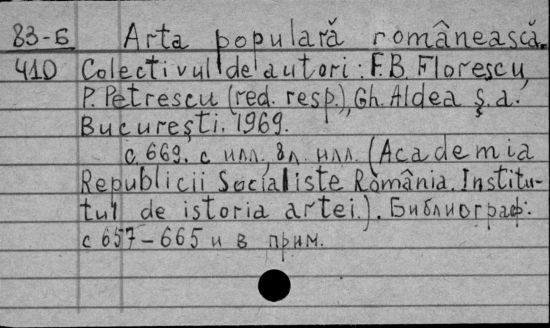 83-Б Arta populară românească.
410 Colectivul de autori: F.B. Florescu,
P. Petrescu (red. resp.), Gh. Aldea ş. a.
Bucureşti. 1969.
с. 669. с илл., 8л. илл. (Academia
Republicii Socialiste România. Institu-
tul de istoria artei.). Библиограф:
с 657-665 и в прим.